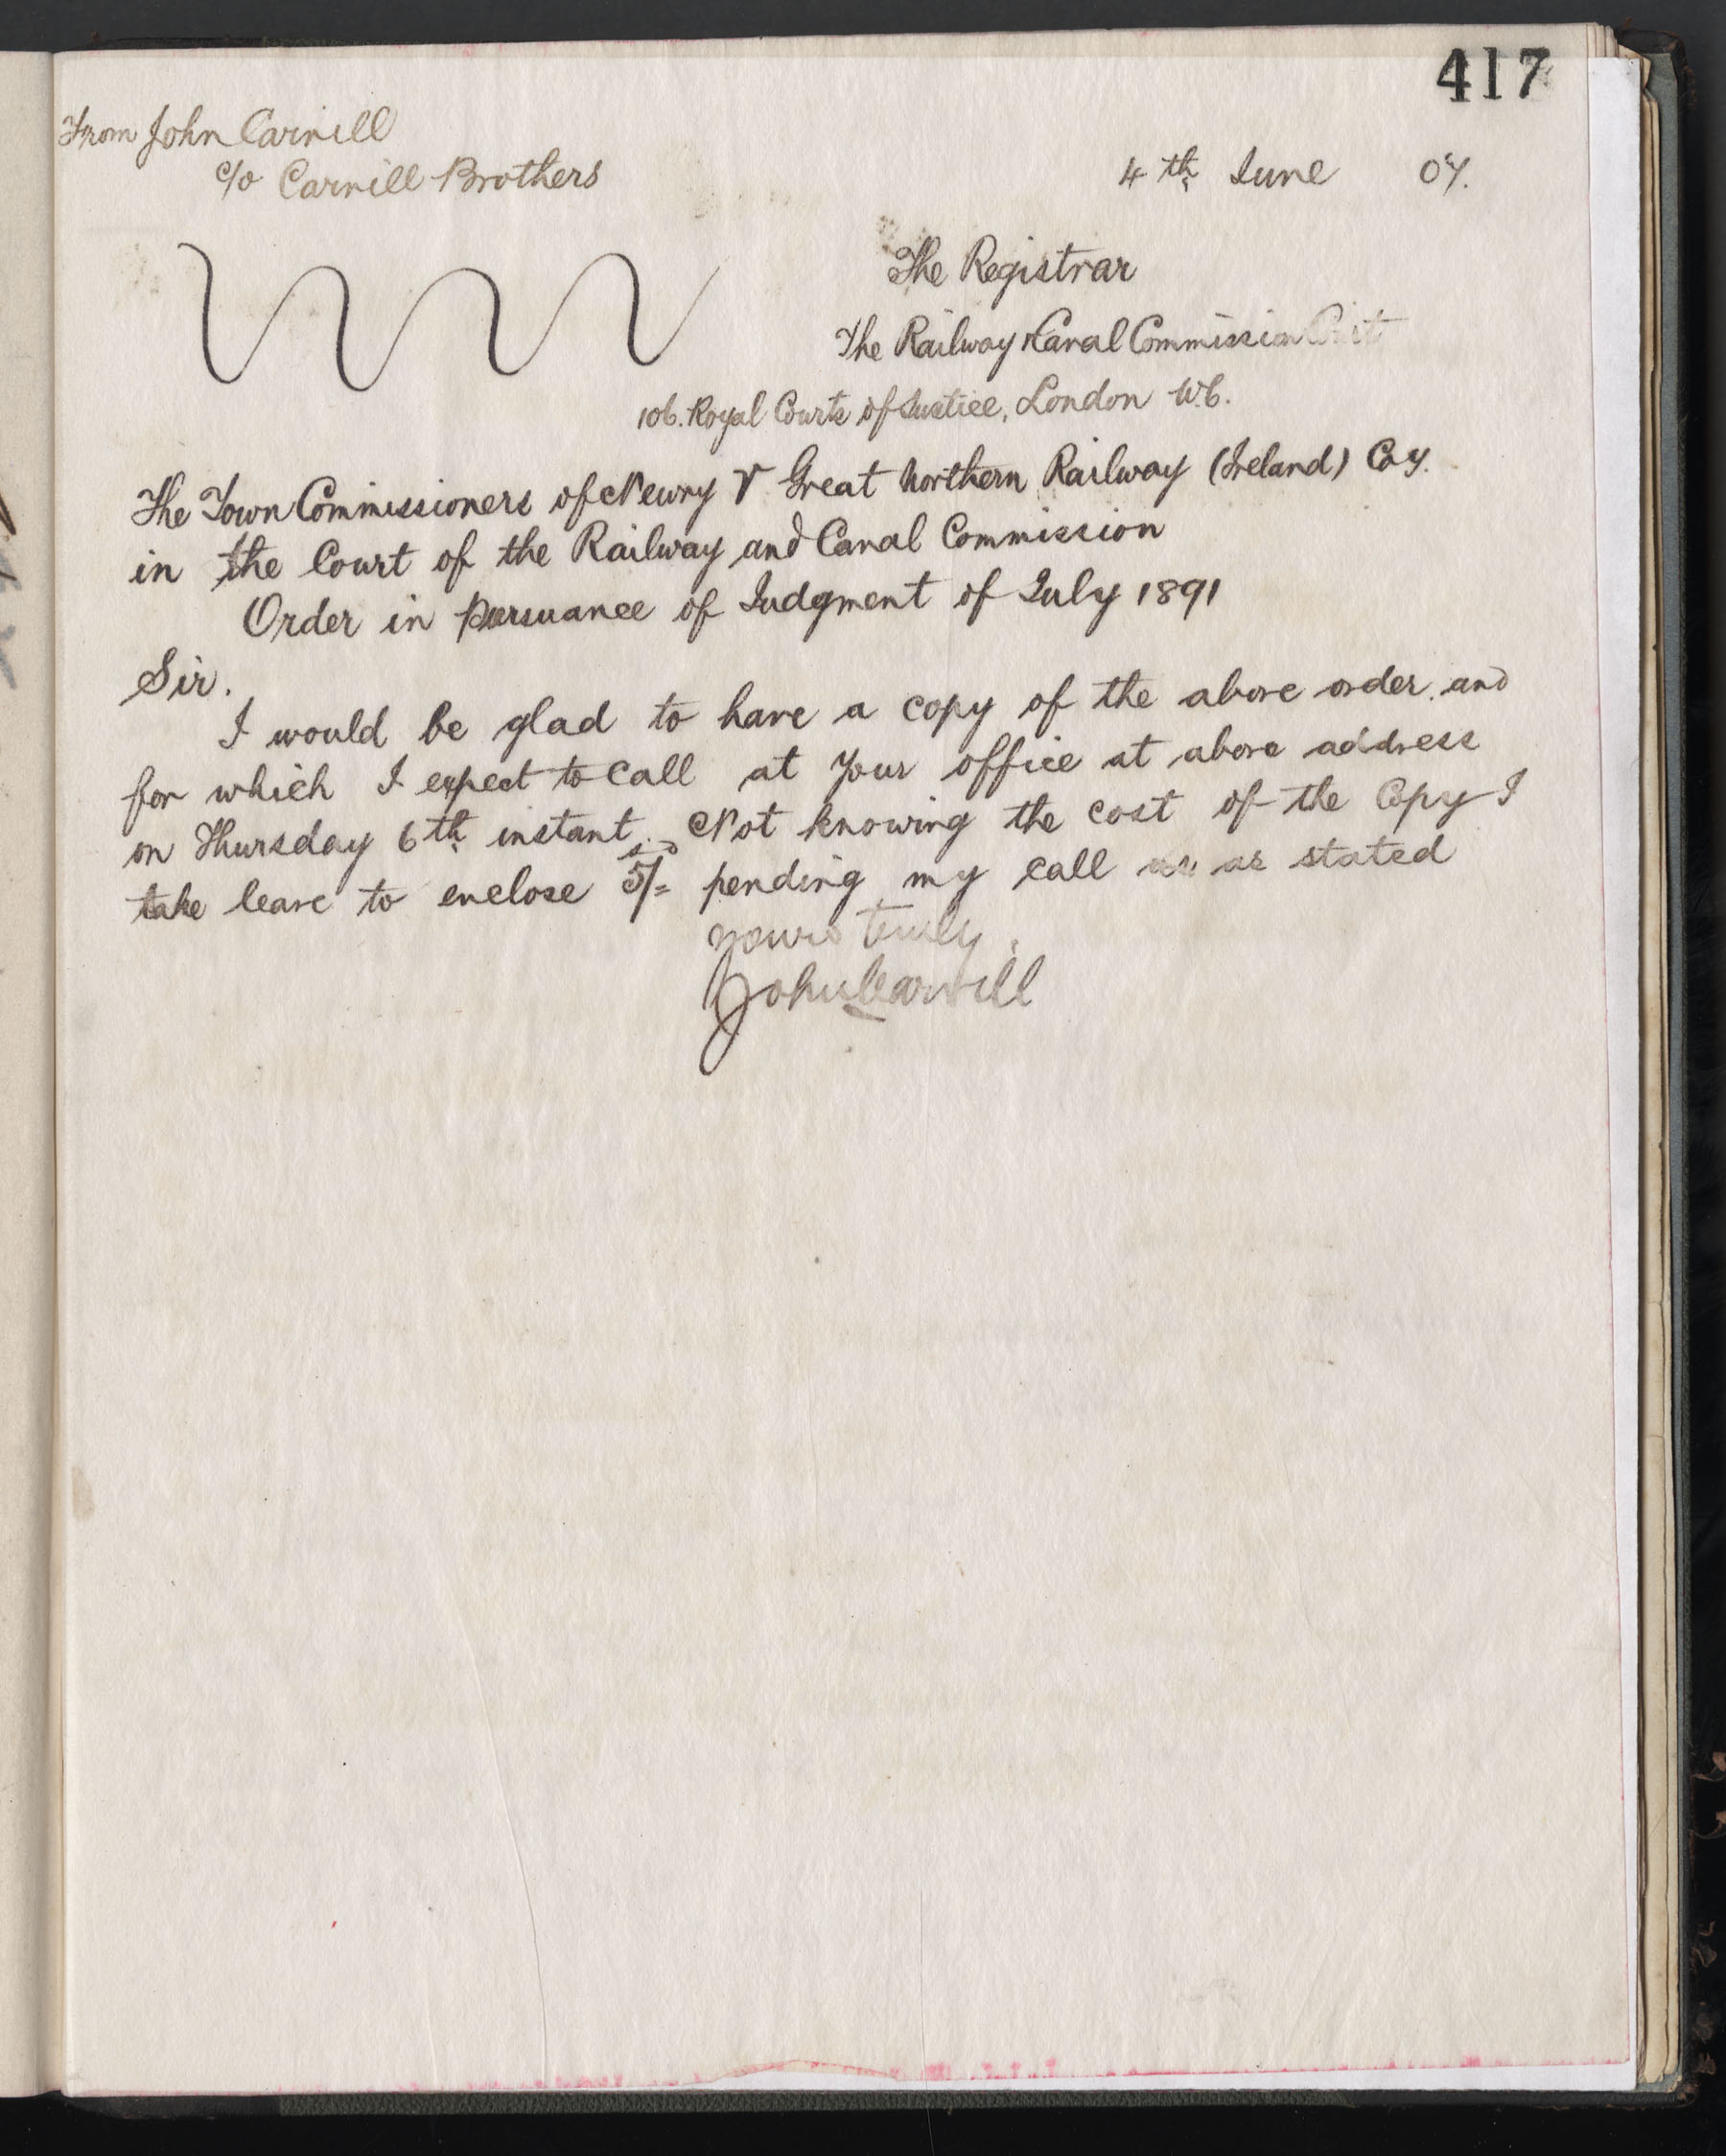 417
From John Carvill
c/o Carvill Brothers
4th June 07.
The Registrar
The Railway & Canal Commission Court
106. Royal Courts of Justice, London W.C.
The Town Commissioners of Newry V Great Northern Railway (Ireland) Coy.
in the Court of the Railway and Canal Commission
Order in pursuance of Judgment of July 1891
Sir.
I would be glad to have a copy of the above order. and
for which I expect to call at your office at above address
on Thursday 6th instant. Not knowing the cost of the Copy I
take leave to enclose 5/= pending my call as stated
yours truly.
John Carvill